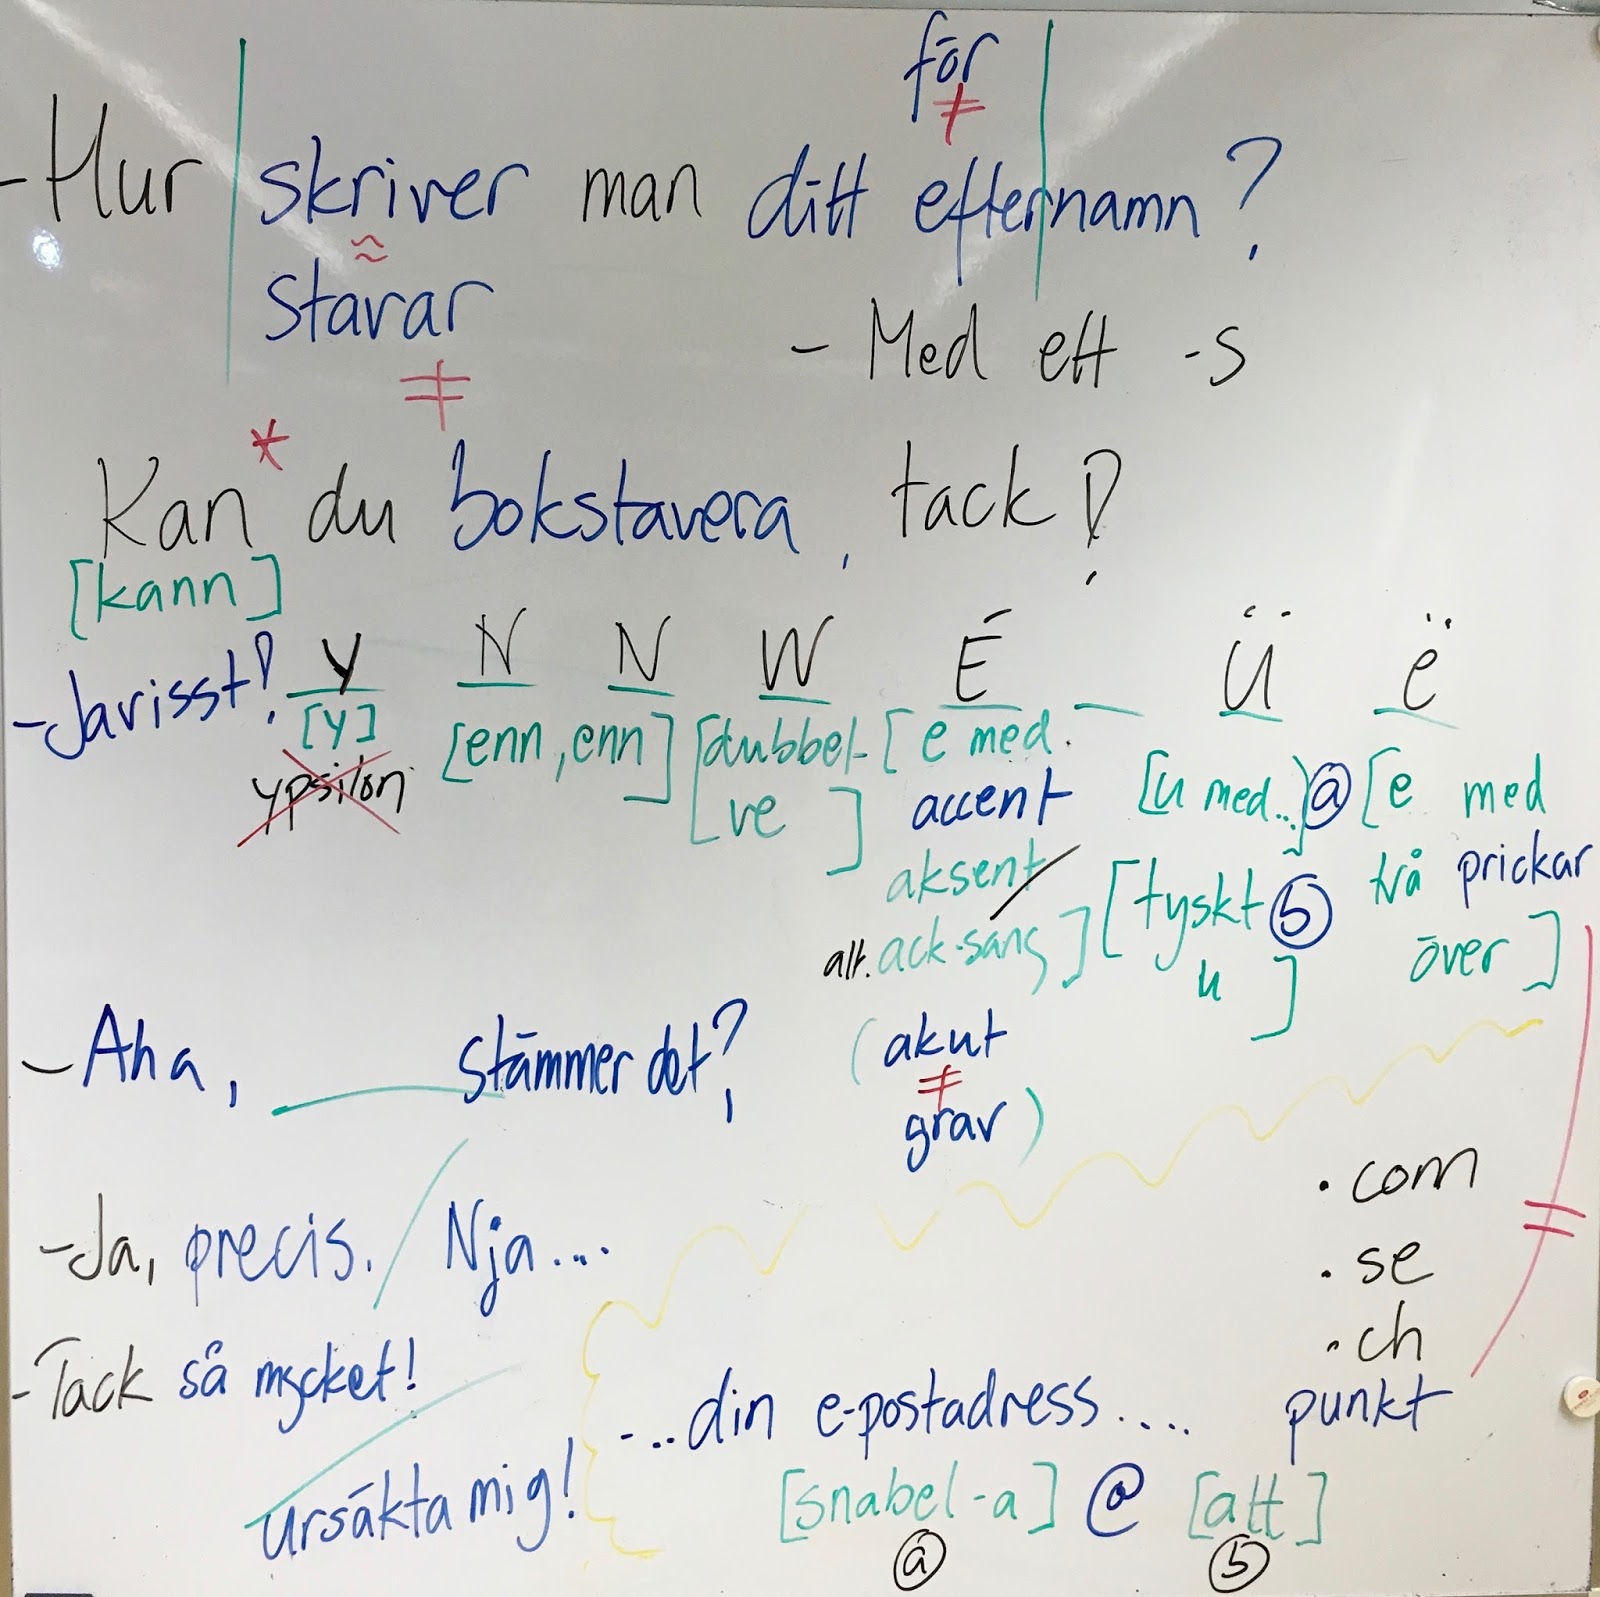 för
≠
-Hur skriver man ditt efternamn?
≈
stavar
- Med ett -s
≠
*
Kan du bokstavera, tack!
[kann]
-Javisst! Y N N W É _ Ü ë
[y] [enn, enn] [dubbel-ve] [e med accent
ypsilon
aksent
alt. ack-sang]
[u med..] ⓐ
[tyskt ⓑ
u]
[e med
två prickar
över]
(akut
≠
grav)
-Aha, ___ stämmer det?
-Ja, precis. / Nja....
-Tack så mycket!
ursäkta mig!
.com
.se
.ch
punkt
≠
-..din e-postadress....
[snabel-a] @ [att]
ⓐ ⓑ